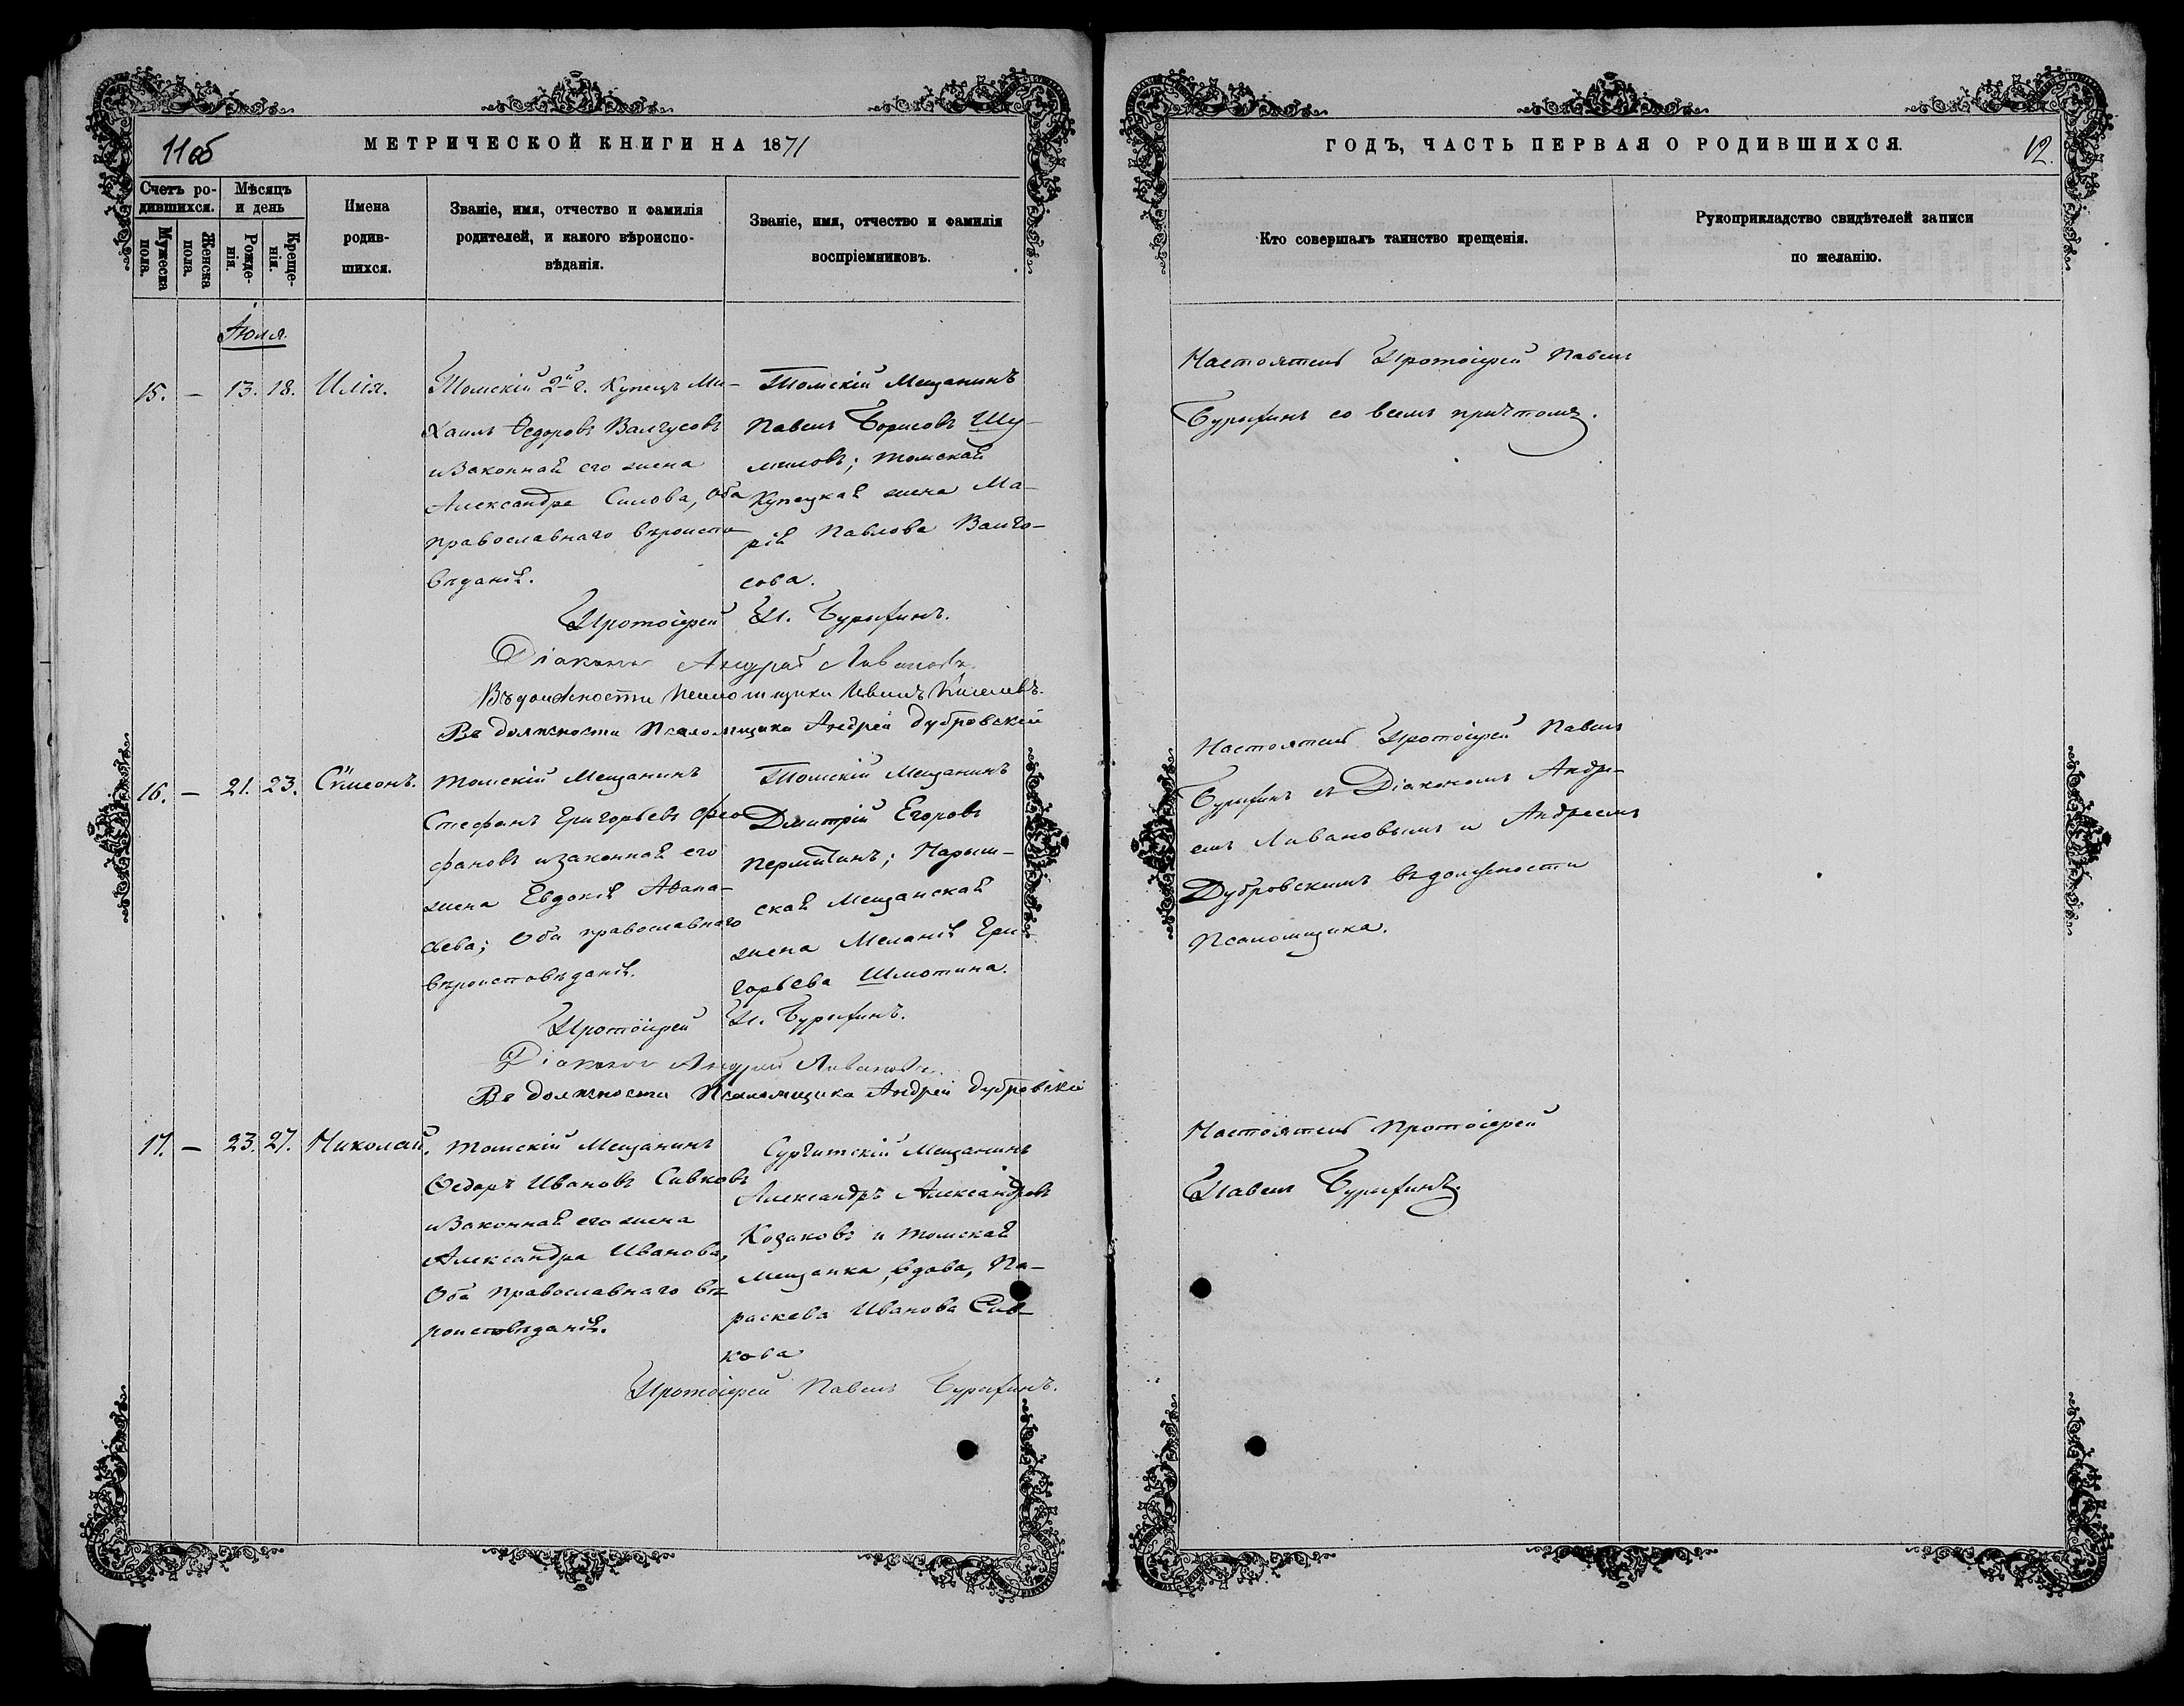 11 об
МЕТРИЧЕСКОЙ КНИГИ НА 1871
Счетъ ро-
дившихся.
Мужеска пола.
Женска пола.
Мѣсяцъ
и день
Рожде-
нія.
Креще-
нія.
Имена
родив-
шихся.
Званіе, имя, отчество и фамилія
родителей, и какого вѣроиспо-
вѣданія.
Званіе, имя, отчество и фамилія
воспріемниковъ.
Іюля.
15. — 13. 18. Илія.
Томскій 2й г. Купецъ Ми-
хаилъ Ѳедоровъ Валгусовъ
и законная его жена
Александра Силова, оба
православнаго вѣроиспо-
вѣданія.
Томскій Мещанинъ
Павелъ Борисовъ Шу-
миловъ; томская
Купецкая жена Ма-
рія Павлова Валго-
сова.
Протоіерей П. Бурыгинъ.
Діаконъ Андрей Ливановъ.
Въ должности Псаломщика
Въ должности Псаломщика Андрей Дубровскій
16. — 21. 23. Сѵмеонъ.
томскій Мещанинъ
Стефанъ Григорьевъ Фео
фановъ и законная его
жена Евдокія Аѳана-
сьева; оба православнаго
вѣроисповѣданія.
Томскій Мещанинъ
Дмитрій Егоровъ
Пермитинъ; Нарым-
ская Мещанская
жена Меланія Гри-
горьева Шмотина.
Протоіерей П. Бурыгинъ.
Діаконъ Андрей Ливановъ.
Въ должности Псаломщика Андрей Дубровскій
17. — 23. 27. Николай.
томскій Мещанинъ
Ѳедоръ Ивановъ Сивковъ
и законная его жена
Александра Иванова,
оба православнаго вѣ-
роисповѣданія.
Сургутскій Мещанинъ
Александръ Александровъ
Козаковъ и томская
мещанка, вдова, Па-
раскева Иванова Сив-
кова
Протоіерей Павелъ Бурыгинъ.
ГОДЪ, ЧАСТЬ ПЕРВАЯ О РОДИВШИХСЯ.
12.
Кто совершалъ таинство крещенія.
Рукоприкладство свидѣтелей записи
по желанію.
Настоятель Протоіерей Павелъ
Бурыгинъ со всемъ причтомъ.
Настоятель Протоіерей Павелъ
Бурыгинъ съ Діакономъ Андре-
емъ Ливановымъ и Андреемъ
Дубровскимъ въ должности
Псаломщика.
Настоятель Протоіерей
Павелъ Бурыгинъ.